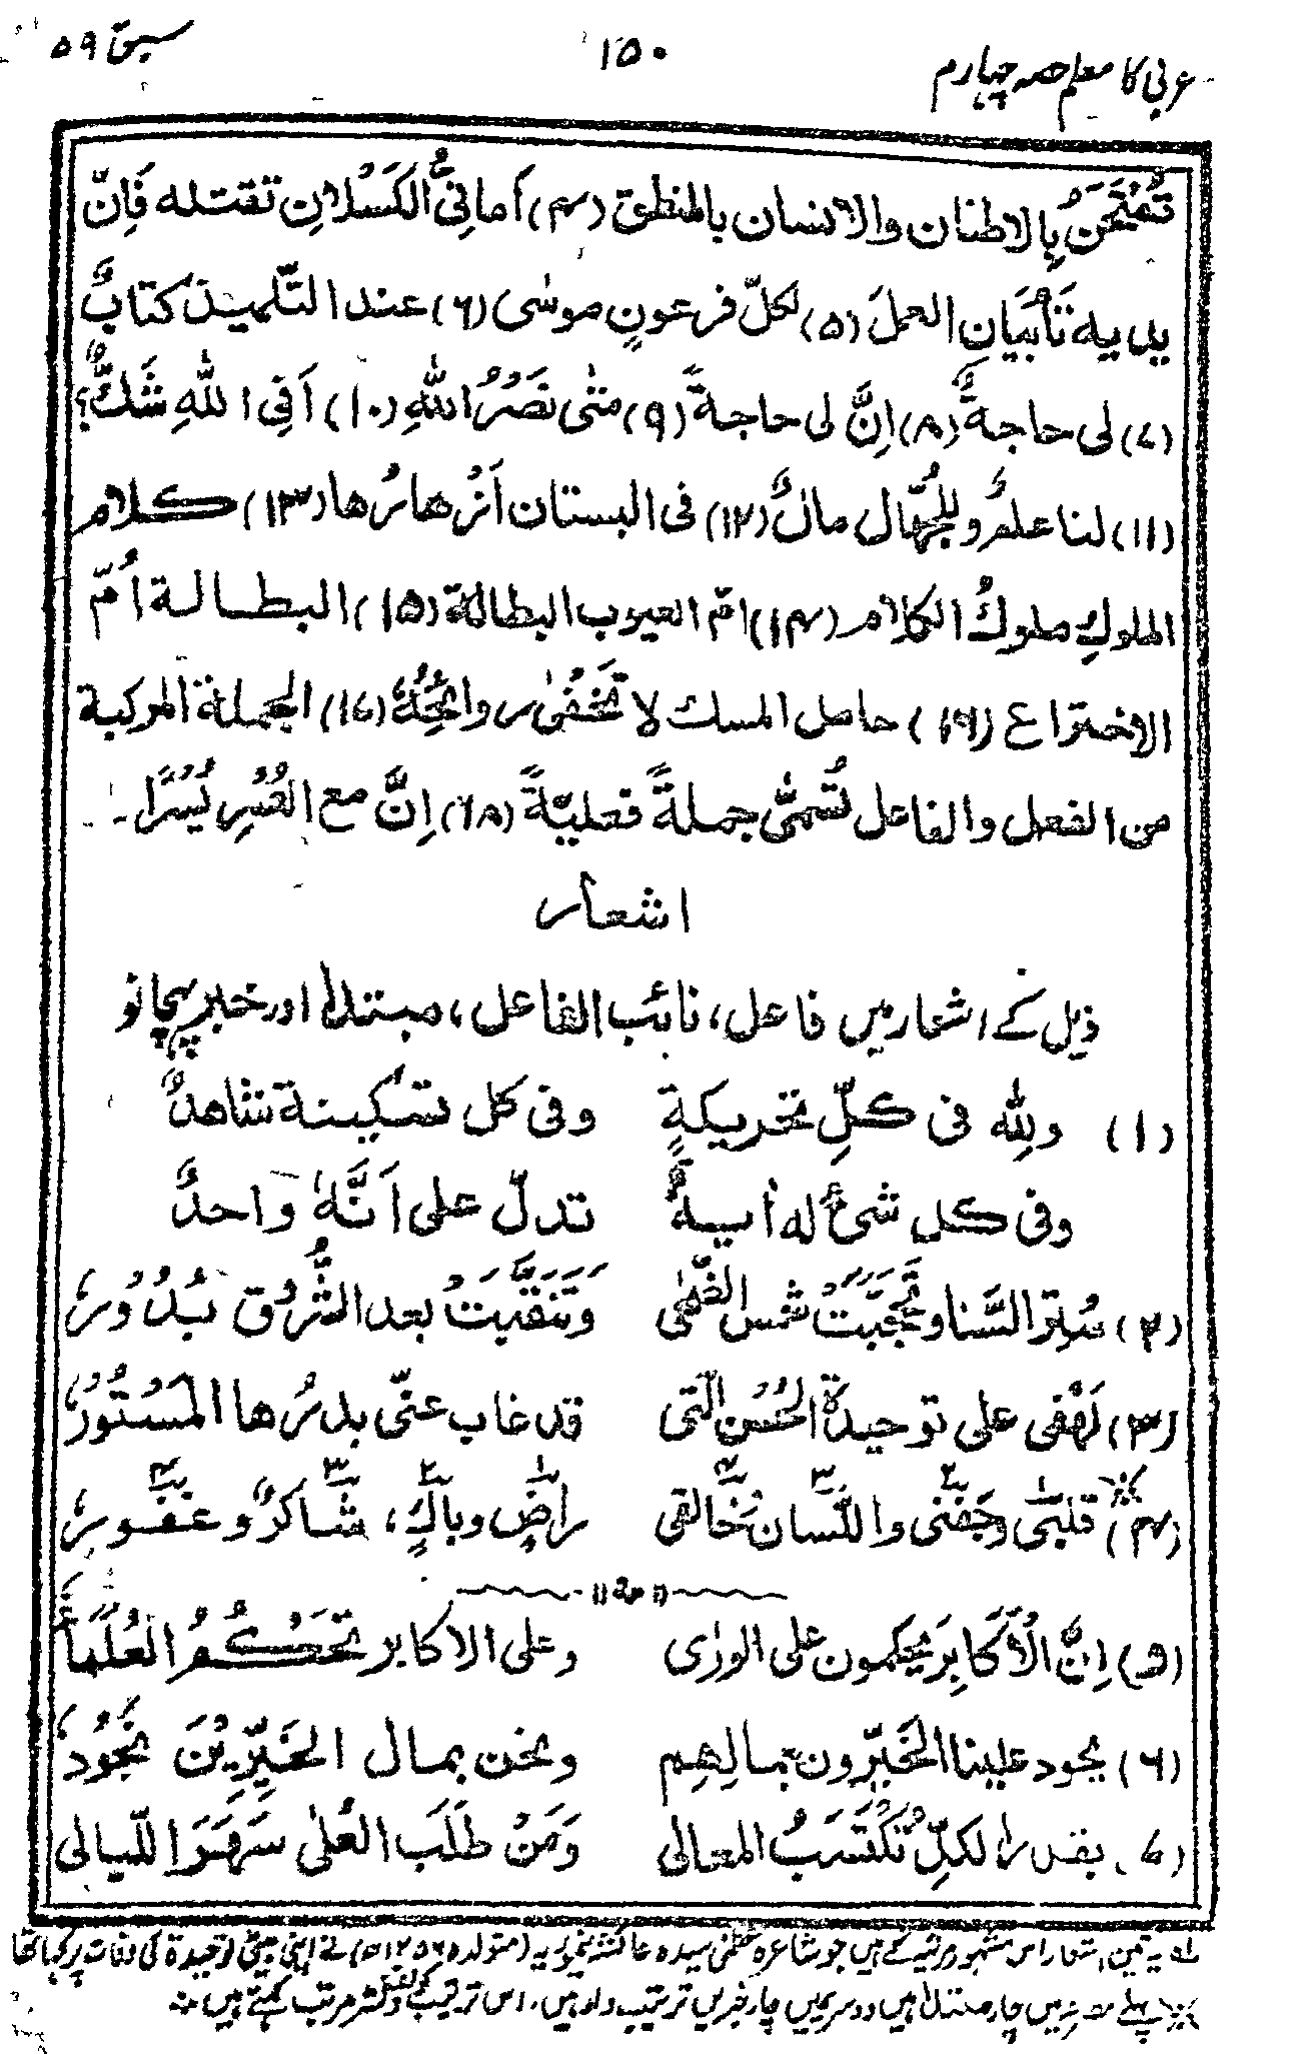 عربی کا معلم حصہ چہارم
۱۵۰
سبق ۵۹
تُمْتَحَنُ بِالاطنان والانسان بالمنطق (۴) اَمانِیُّ الکَسْلانِ تقتله فَاِنّ
یدیه تَأْبَیَانِ العملَ (۵) لکلّ فرعونٍ موسٰی (۶) عند التّلمیذ کتابٌ
(۷) لی حاجةٌ (۸) اِنَّ لی حاجةً (۹) متٰی نَصْرُ اللّٰهِ (۱۰) اَفِی اللّٰهِ شَكٌّ؟
(۱۱) لنا علمٌ وللجُهّال مالٌ (۱۲) فی البستان اَزْهارُها (۱۳) کلام
الملوكِ ملوكُ الکلام (۱۴) امّ العیوب البطالة (۱۵) البطالة اُمّ
الاختراع (۱۶) حامل المسك لا تَخْفٰی روائحُهُ (۱۷) الجملة المرکبة
من الفعل والفاعل تُسَمّٰی جملةً فعلیّةً (۱۸) اِنَّ مع العُسْرِ یُسْرًا۔
اشعار
ذیل کے اشعار میں فاعل، نائب الفاعل، مبتدا اور خبر پہچانو
(۱) وللّٰه فی کلِّ تحریکةٍ وفی کل تسکینة شاهدٌ
وفی کل شیءٍ له اٰیةٌ تدلّ علی اَنَّهٗ واحدٌ
(۲) سُتِرَ السَّنا وتَحَجَّبَتْ شمس الضّحٰی وَتَنَقَّبَتْ بعد الشُّرُوق بُدُوْرٗ
(۳) لَهْفی علی توحیدةِ الحُسْن الّتی قد غاب عنّی بدرُها المَسْتُوْرٗ
(۴) قلبی وجَفْنی واللّسان وخالقی راضٍ وباكٍ، شاکرٌ وغفورٗ
(۵) اِنَّ الْاَکابِرَ یحکمون علی الورٰی وعلی الاکابر تَحْکُمُ العُلَماءُ
(۶) یجود علینا الخَیِّرون بمالِهِم ونحن بمال الخَیِّرِیْنَ نَجُوْدٗ
(۷) بقدر الکدِّ تُکْتَسَبُ المعالی وَمَنْ طَلَبَ العُلٰی سَهِرَ اللّیالی
لہ یہ تین اشعار اس مشہور مرثیہ کے ہیں جو شاعرہ عظمیٰ سیدہ عائشہ تیموریہ (متولدہ ۱۲۵۶ھ) نے اپنی بیٹی توحیدۃ کی وفات پر کہا تھا
پہلے میں چار مبتدا ہیں دوسرے میں چار خبریں ترتیب وار ہیں۔ اس ترکیب کو لف ونشر مرتب کہتے ہیں